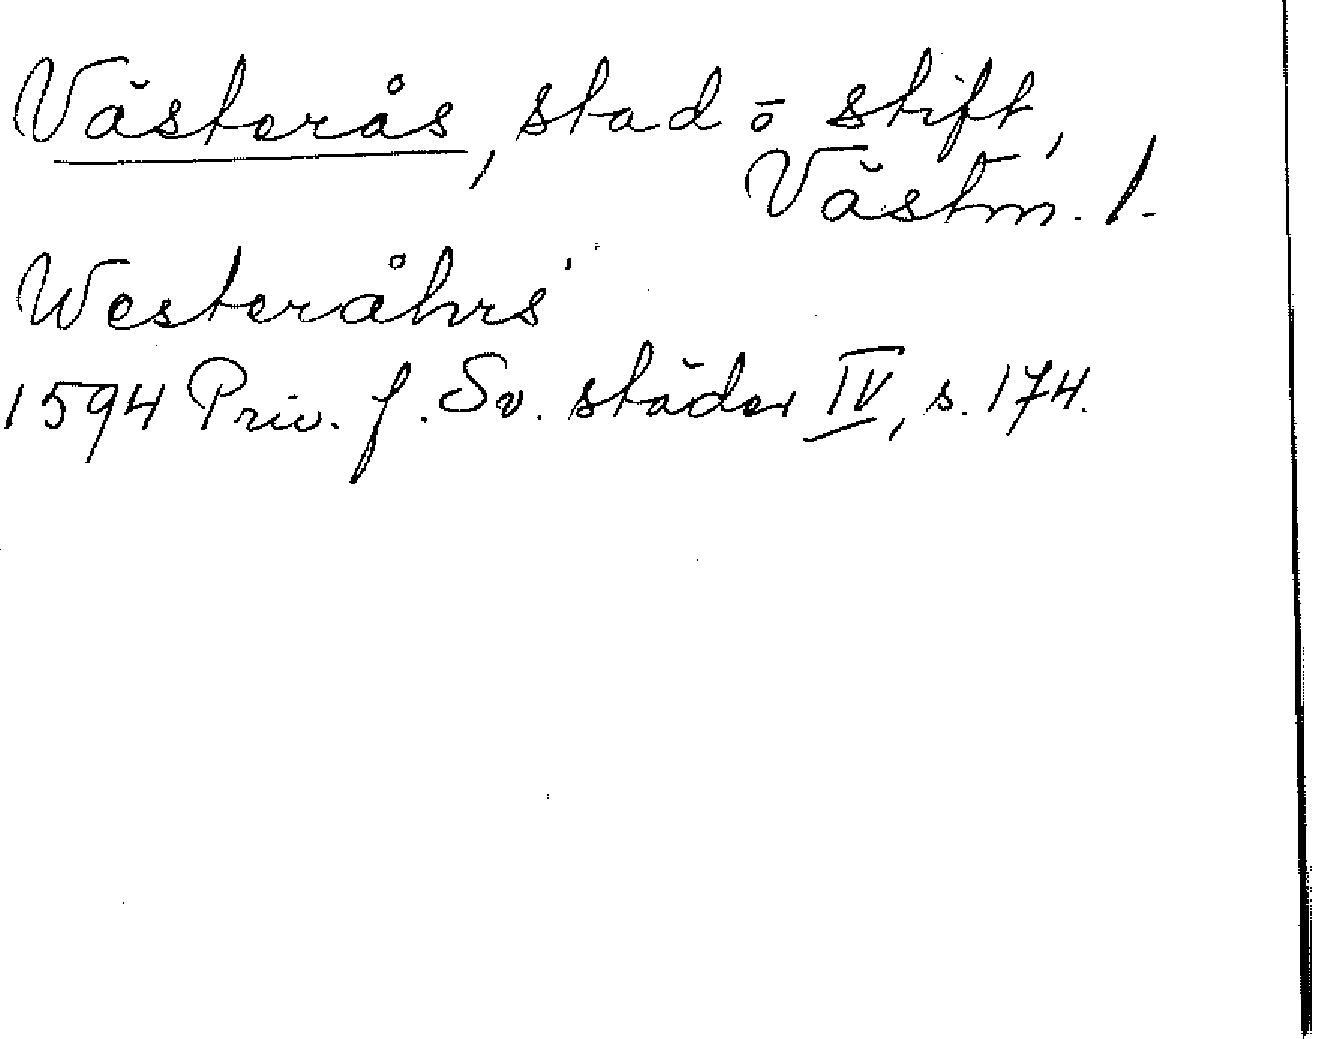 Västerås, stad ō stift,
Västm. l.
Westeråhrs
1594 Priv. f. Sv. städer IV, s. 174.